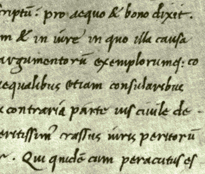 scriptũ: pro aequo & bono dixit.
m & in iure in quo illa causa
argumentorũ exemplorumq; co
aequalibus etiam consularibus
contraria parte ius civile de-
peritissimꝰ crassus iuris peritorũ
Qui quidẽ cum peracutus es